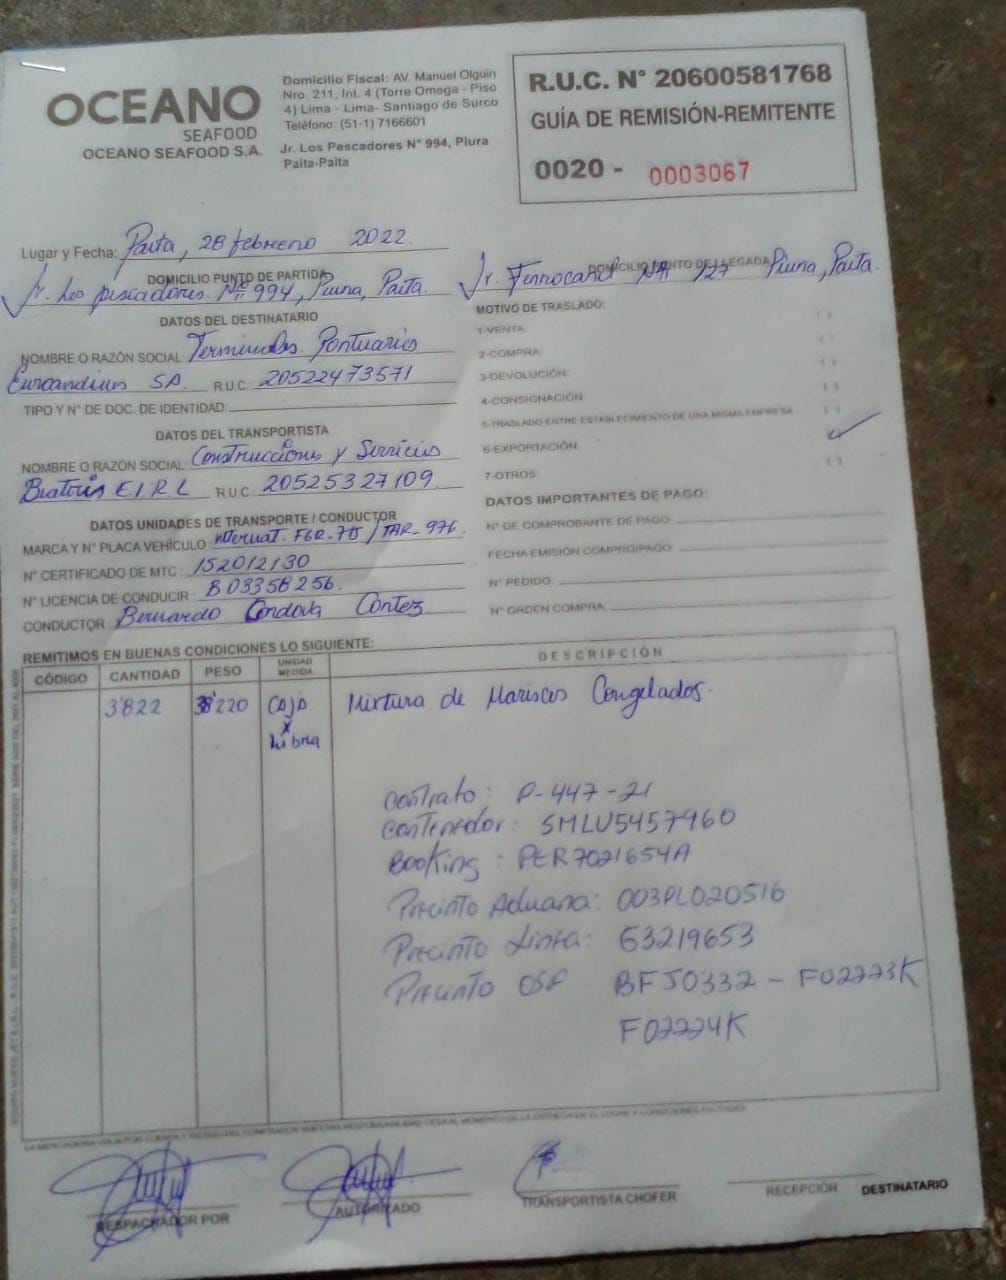 OCEANO
SEAFOOD
OCEANO SEAFOOD S.A.
Domicilio Fiscal: AV. Manuel Olguin
Nro. 211, Int. 4 (Torre Omega - Piso
4) Lima - Lima- Santiago de Surco
Teléfono: (51-1) 7166601
Jr. Los Pescadores N° 994, Piura
Paita-Paita
R.U.C. N° 20600581768
GUÍA DE REMISIÓN-REMITENTE
0020 - 0003067
Lugar y Fecha: Paita, 28 febrero 2022.
DOMICILIO PUNTO DE PARTIDA
Jr. Los pescadores N° 994, Piura, Paita.
DOMICILIO PUNTO DE LLEGADA
Jr. Ferrocarril 127 Piura, Paita.
DATOS DEL DESTINATARIO
NOMBRE O RAZÓN SOCIAL: Terminales Portuarios
Euroandinos SA. R.U.C.: 20522473571
TIPO Y N° DE DOC. DE IDENTIDAD:
DATOS DEL TRANSPORTISTA
NOMBRE O RAZÓN SOCIAL: Construcciones y Servicios
Beatoris E.I.R.L R.U.C. 20525327109
DATOS UNIDADES DE TRANSPORTE / CONDUCTOR
MARCA Y N° PLACA VEHÍCULO: Internat. F6R-715 / TAR-976.
N° CERTIFICADO DE MTC: 152012130
N° LICENCIA DE CONDUCIR: B03358256.
CONDUCTOR: Bernardo Cordova Cortez
MOTIVO DE TRASLADO:
1-VENTA: ( )
2-COMPRA: ( )
3-DEVOLUCIÓN: ( )
4-CONSIGNACIÓN: ( )
5-TRASLADO ENTRE ESTABLECIMIENTO DE UNA MISMA EMPRESA ( )
6-EXPORTACIÓN: ✓
7-OTROS: ( )
DATOS IMPORTANTES DE PAGO:
N° DE COMPROBANTE DE PAGO:
FECHA EMISIÓN COMPRO/PAGO:
N° PEDIDO:
N° ORDEN COMPRA:
REMITIMOS EN BUENAS CONDICIONES LO SIGUIENTE:
CÓDIGO CANTIDAD PESO UNIDAD MEDIDA DESCRIPCIÓN
3'822 38'220 CAJA x Libra Mixtura de Mariscos Congelados.
Contrato: P-447-21
Contenedor: SMLU5457960
Booking: PER7021654A
Precinto Aduana: 003PL020516
Precinto Linea: 63219653
Precinto OSF BFJ0332 - F02223K
F02224K
LA MERCADERIA VIAJA POR CUENTA Y RIESGO DEL COMPRADOR NUESTRA RESPONSABILIDAD CESA AL MOMENTO DE LA ENTREGA EN EL LUGAR Y CONDICIONES PACTADAS
DESPACHADOR POR
AUTORIZADO
TRANSPORTISTA CHOFER
RECEPCIÓN
DESTINATARIO